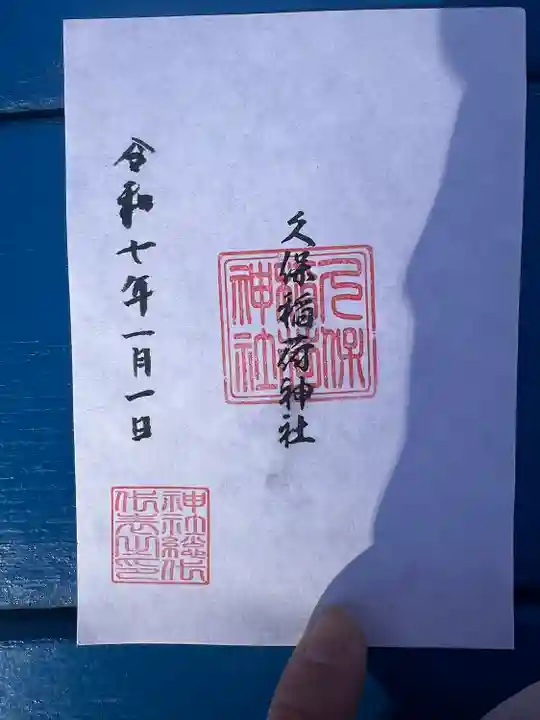 久保稲荷神社
久保稲荷神社
令和七年一月一日
神社総代
代表之印